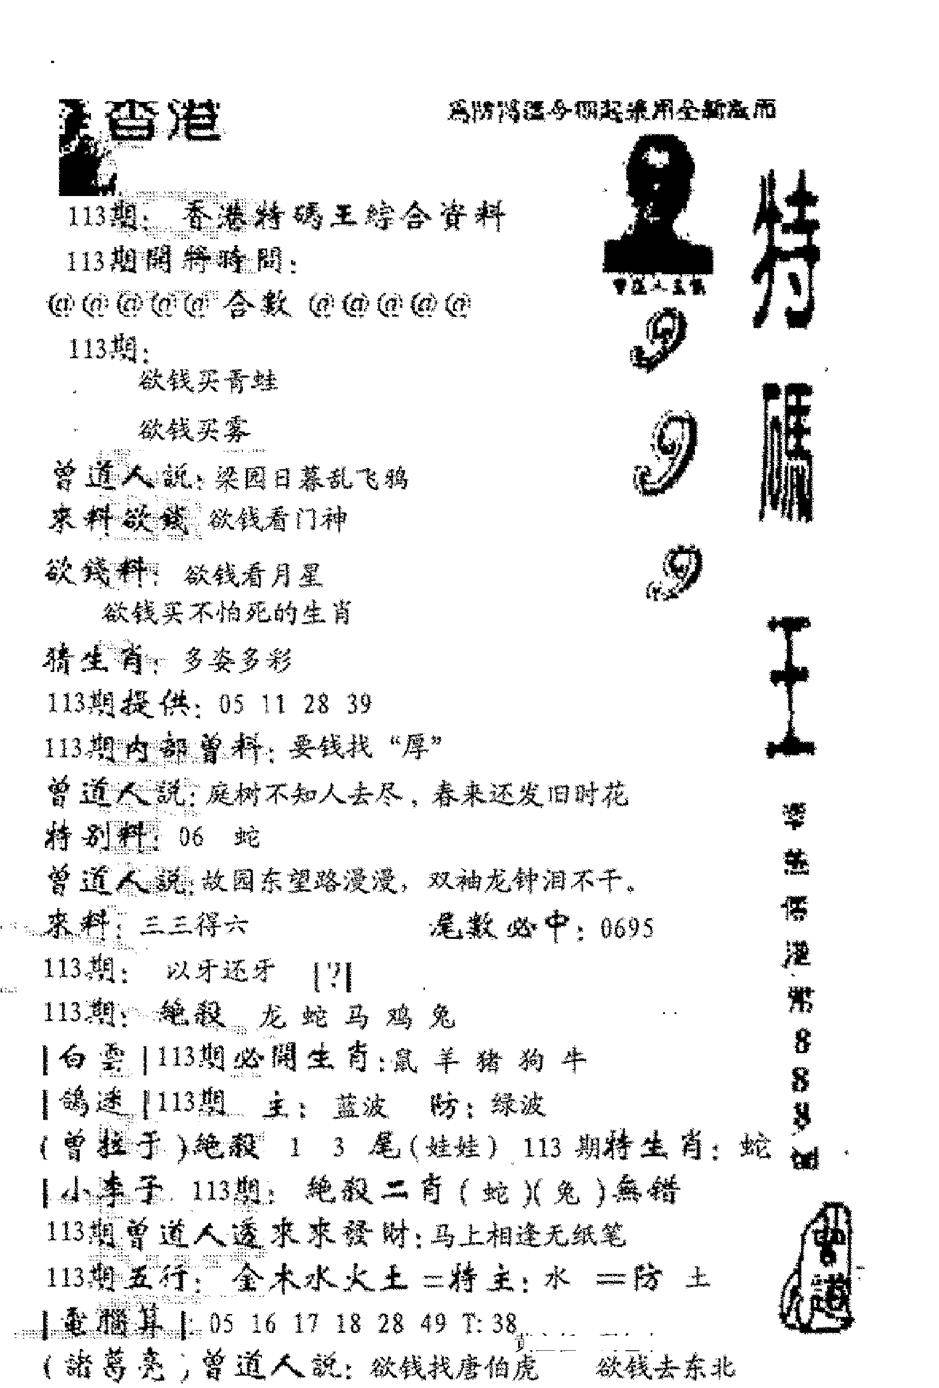 香港
113期：香港特碼王綜合資料
113期開時間：
@@@@@ 合數 @@@@@
113期：
欲钱买青蛙
欲钱买雾
曾道人説：梁园日暮乱飞鸦
來料欲錢 欲钱看门神
欲錢料：欲钱看月星
欲钱买不怕死的生肖
猜生肖：多姿多彩
113期提供：05 11 28 39
113期内部曾料：要钱找“厚”
曾道人説：庭树不知人去尽，春来还发旧时花
特别料：06 蛇
曾道人説：故园东望路漫漫，双袖龙钟泪不干。
來料：三三得六 尾數必中：0695
113期：以牙还牙 |?|
113期：絶殺 龙 蛇 马 鸡 兔
|白雲|113期必開生肖:鼠 羊 猪 狗 牛
|鴿迷|113期 主：蓝波 防：绿波
(曾拉于)絶殺 1 3 尾(娃娃) 113期特生肖：蛇
|小李子 113期：絶殺二肖(蛇)(兔)無错
113期曾道人透來來發財:马上相逢无纸笔
113期五行：金木水火土=特主：水 =防 土
|電腦算|：05 16 17 18 28 49 T:38
(諸葛亮)曾道人説：欲钱找唐伯虎 欲钱去东北
9
9
9
特
碼
王
8
8
8
曾道